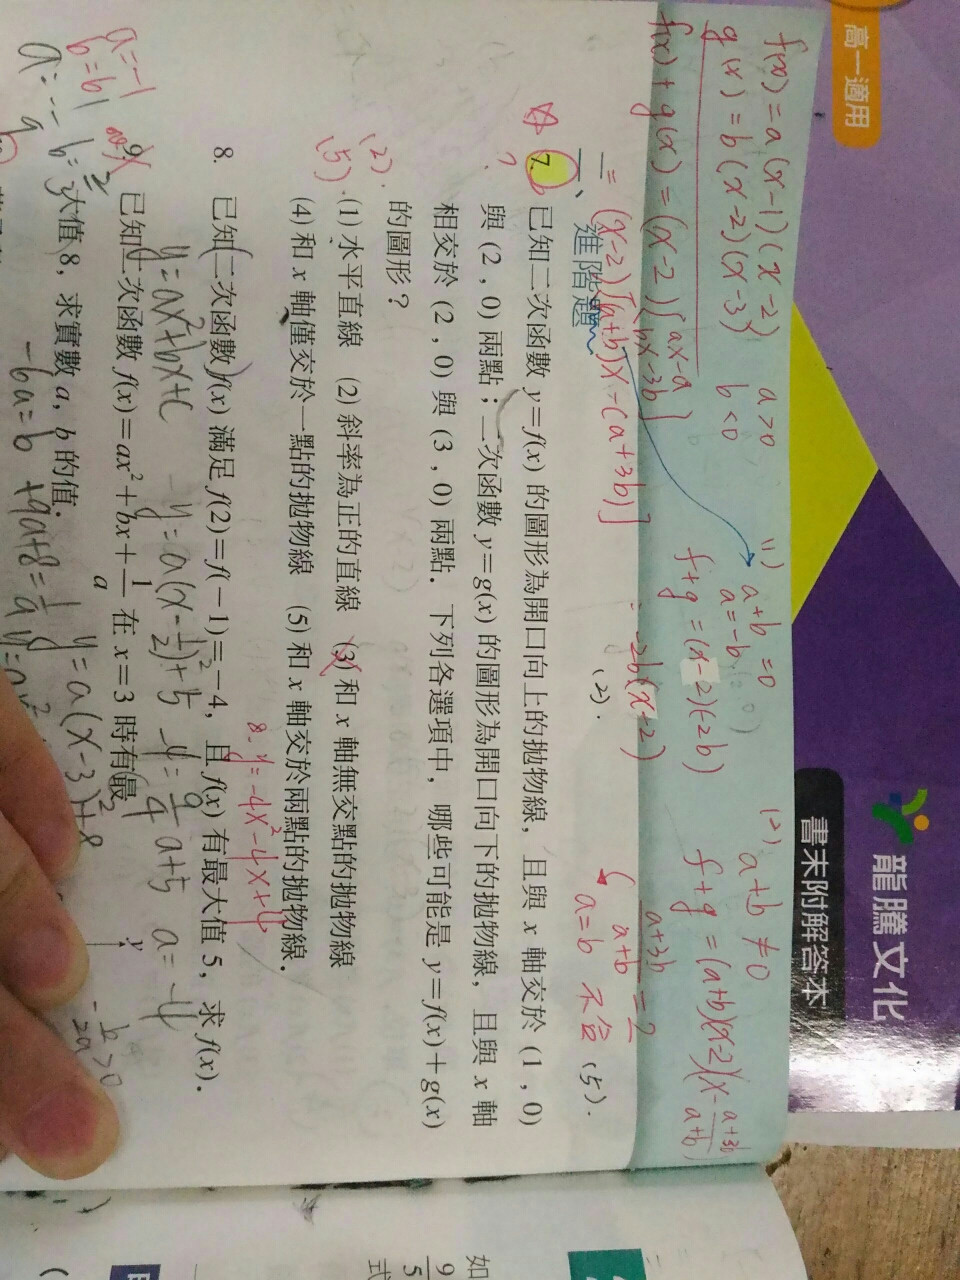 高一適用
龍騰文化
書末附解答本
f(x) = a(x-1)(x-2) a>0
g(x) = b(x-2)(x-3) b<0
f(x) + g(x) = (x-2)[ax-a
+bx-3b]
= (x-2)[(a+b)x-(a+3b)]
(1) a+b=0
a=-b
f+g = (x-2)(-2b)
= -2b(x-2)
(2).
(2) a+b≠0
f+g = (a+b)(x-2)(x-\frac{a+3b}{a+b})
\frac{a+3b}{a+b}=2
a=b 不合 (5).
二、進階題
7. 已知二次函數 y=f(x) 的圖形為開口向上的拋物線,且與 x 軸交於 (1,0)
與 (2,0) 兩點;二次函數 y=g(x) 的圖形為開口向下的拋物線,且與 x 軸
相交於 (2,0) 與 (3,0) 兩點.下列各選項中,哪些可能是 y=f(x)+g(x)
的圖形?
(2).
(5)
(1) 水平直線 (2) 斜率為正的直線 (3) 和 x 軸無交點的拋物線
(4) 和 x 軸僅交於一點的拋物線 (5) 和 x 軸交於兩點的拋物線.
8. y=-4x²-4x+4
8. 已知二次函數 f(x) 滿足 f(2)=f(-1)=-4,且 f(x) 有最大值 5,求 f(x).
y=ax²+bx+c
y=a(x-\frac{1}{2})²+5 -4=\frac{9}{4}a+5 a=-4
9. 已知二次函數 f(x)=ax²+bx+\frac{1}{a} 在 x=3 時有最
大值 8,求實數 a,b 的值.
y=a(x-3)²+8
-\frac{b}{2a}>0
-6a=b +9a+8=\frac{1}{a}
a=-1
b=6